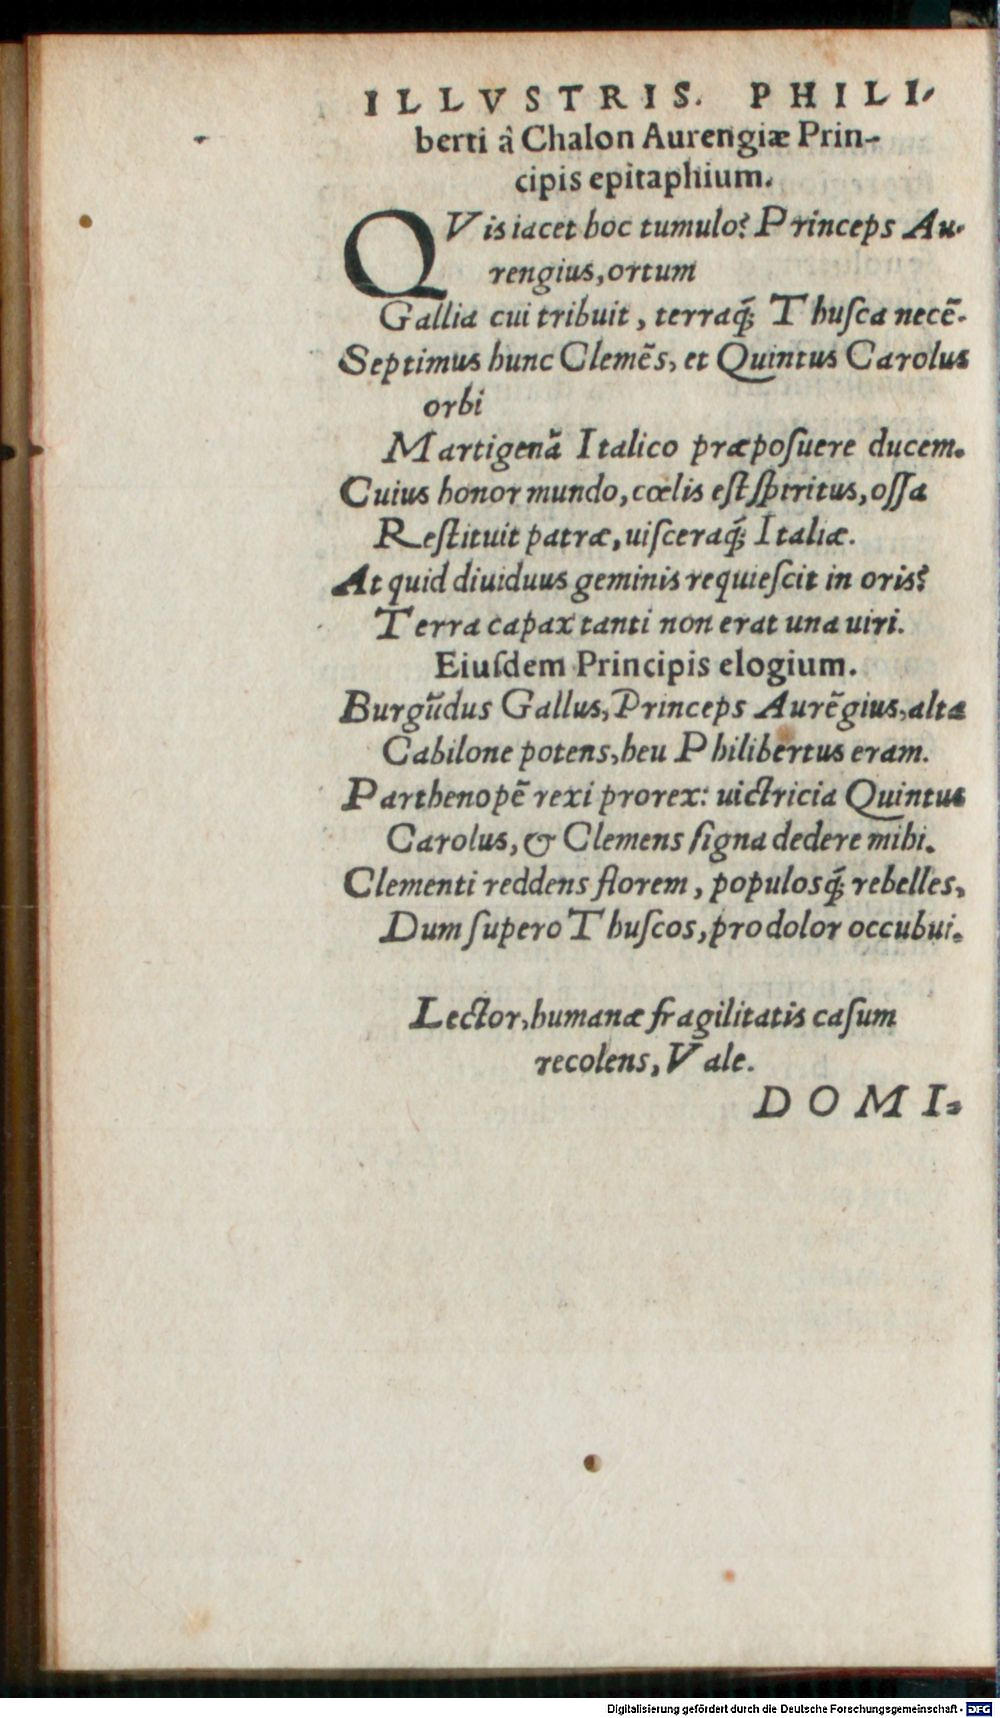 ILLVSTRIS. PHILI-
berti â Chalon Aurengiæ Prin-
cipis epitaphium.
QVis iacet hoc tumulo? Princeps Au-
rengius, ortum
Gallia cui tribuit, terraq́; Thuſca necē.
Septimus hunc Clemēs, et Quintus Carolus
orbi
Martigenā Italico præpoſuere ducem.
Cuius honor mundo, cœlis eſt ſpiritus, oſſa
Reſtituit patræ, uiſceraq́; Italiæ.
At quid diuiduus geminis requieſcit in oris?
Terra capax tanti non erat una uiri.
Eiuſdem Principis elogium.
Burgūdus Gallus, Princeps Aurēgius, alta
Cabilone potens, heu Philibertus eram.
Parthenopē rexi prorex: uictricia Quintus
Carolus, & Clemens ſigna dedere mihi.
Clementi reddens florem, populosq́; rebelles,
Dum ſupero Thuſcos, pro dolor occubui.
Lector, humanæ fragilitatis caſum
recolens, Vale.
DOMI-
Digitalisierung gefördert durch die Deutsche Forschungsgemeinschaft - DFG